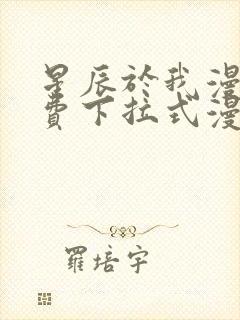 星辰於我漫
費下拉式漫
羅培宇